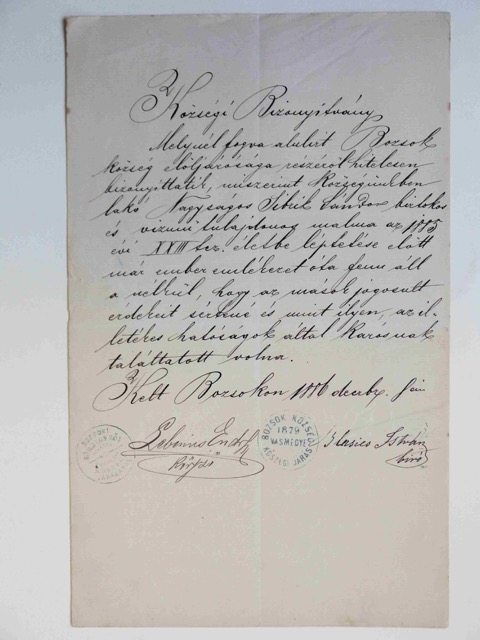 Községi Bizonyitvány
Melynél fogva alulirt Bozsok
község elöljárósága részéről hitelesen
bizonyittatik, miszerint Községünkben
lakó Nagyságos Sándor birtokos
és vizimi tulajdonos malma az 1885
évi XXIII tcz. életbe léptetése előtt
már ember emlékezet óta fenn áll
a nélkül, hogy az mások jogosult
érdekeit sértené és mint ilyen, az il-
letékes hatóságok által károsnak
találtatott volna.
Kelt Bozsokon 1886 decbr.
körjző
BOZSOK KÖZSÉG
1879
VASMEGYE
KŐSZEGI JÁRÁS
István
biró